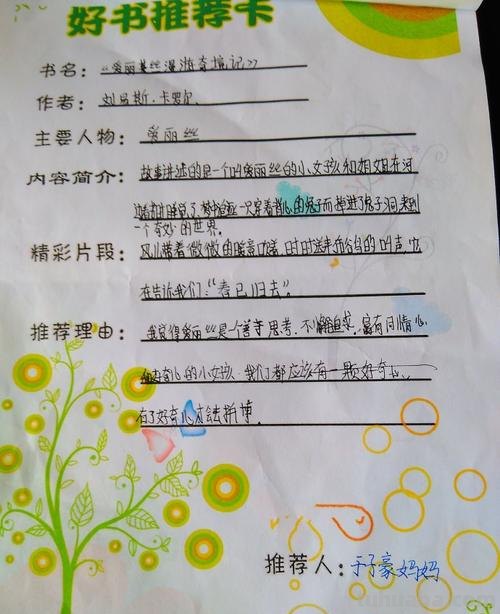 好书推荐卡
书名：《爱丽丝漫游奇境记》
作者：刘易斯·卡罗尔
主要人物：爱丽丝
内容简介：故事讲述的是一个叫爱丽丝的小女孩和姐姐在河
边时睡着了，梦中 一穿着背心的兔子而掉进了兔子洞来到
一个奇妙的世界。
精彩片段：风儿带着微微的暖意吹着，时时送来布谷鸟的叫声，
在告诉我们："春已归去"。
推荐理由：我觉得爱丽丝是个善于思考，不懈追求，富有同情心
好奇心的小女孩，我们都应该有一颗好奇心，
有了好奇心才会去拼搏。
推荐人：于子豪妈妈